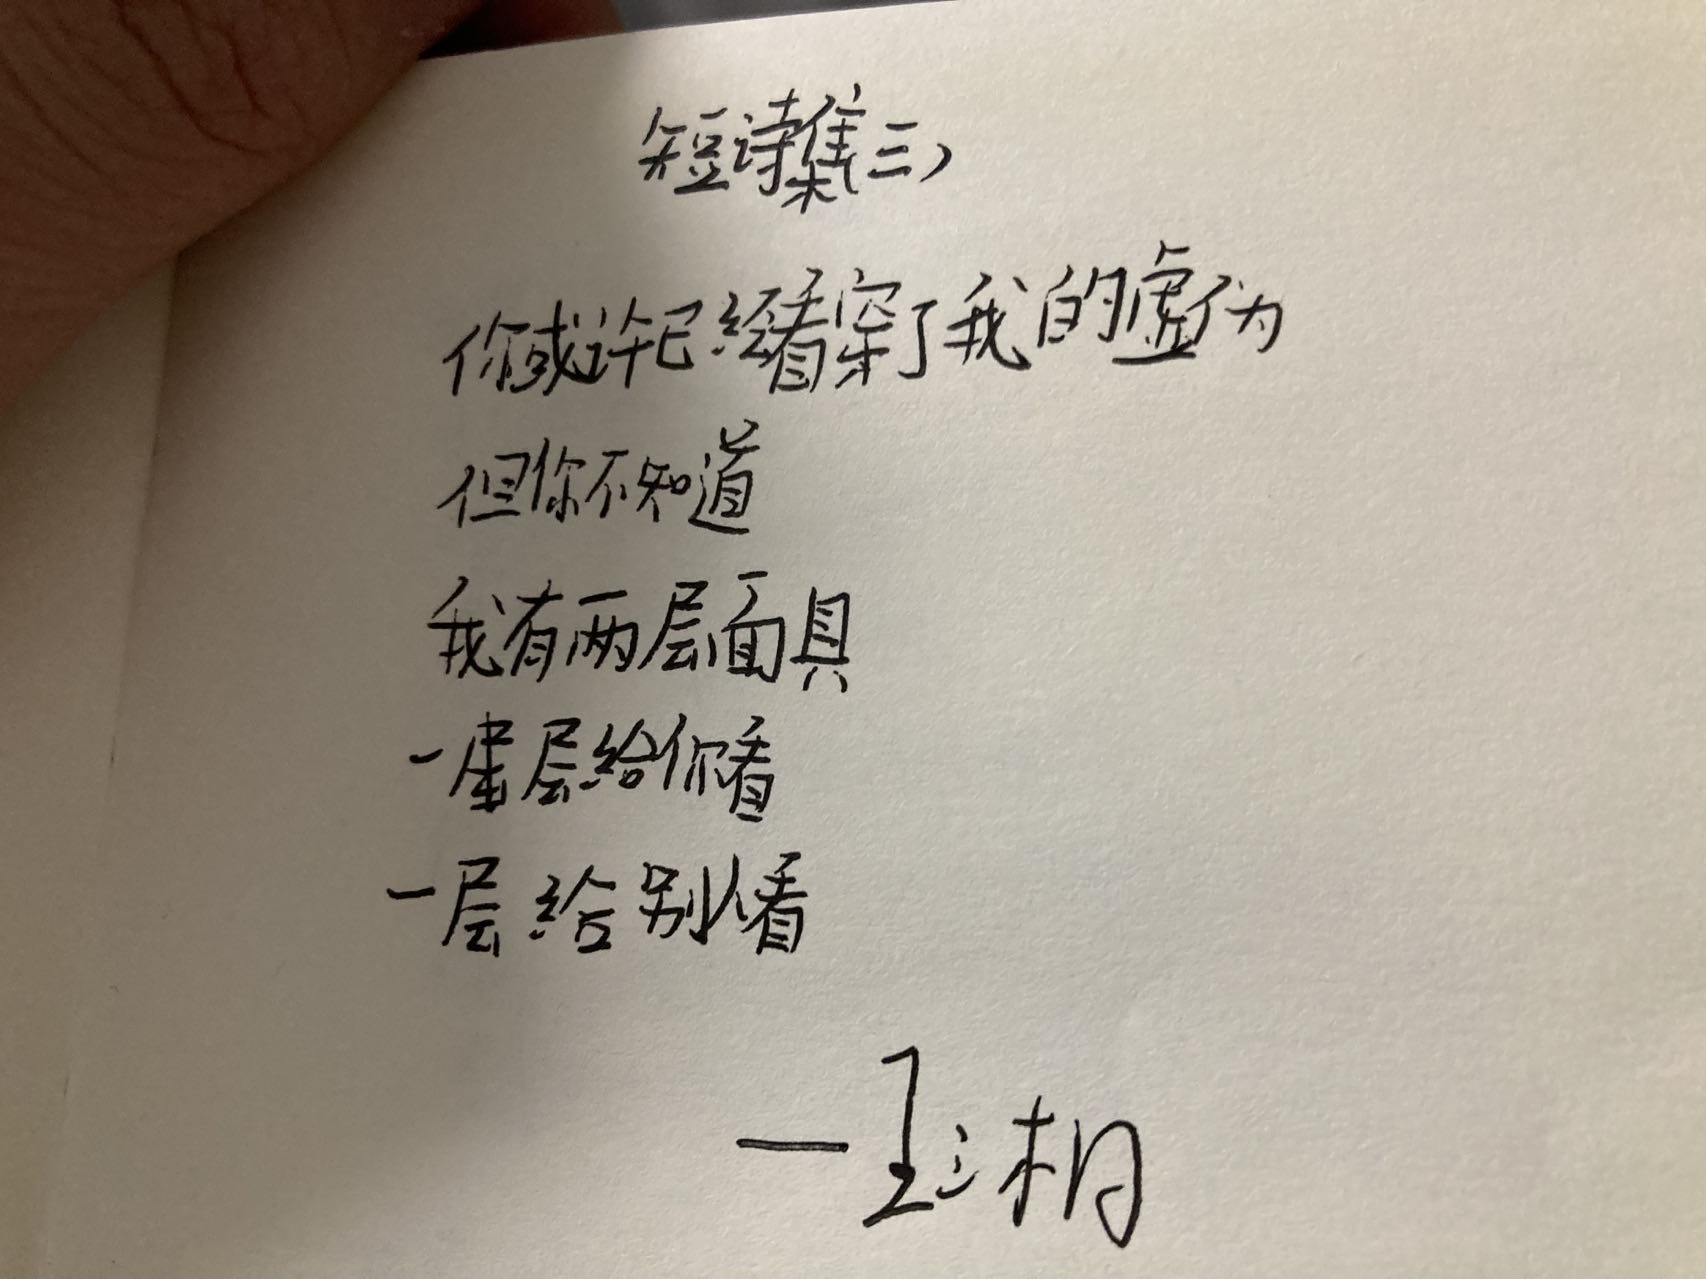 短诗集三,
你或许已经看穿了我的虚伪
但你不知道
我有两层面具
一层给你看
一层给别人看